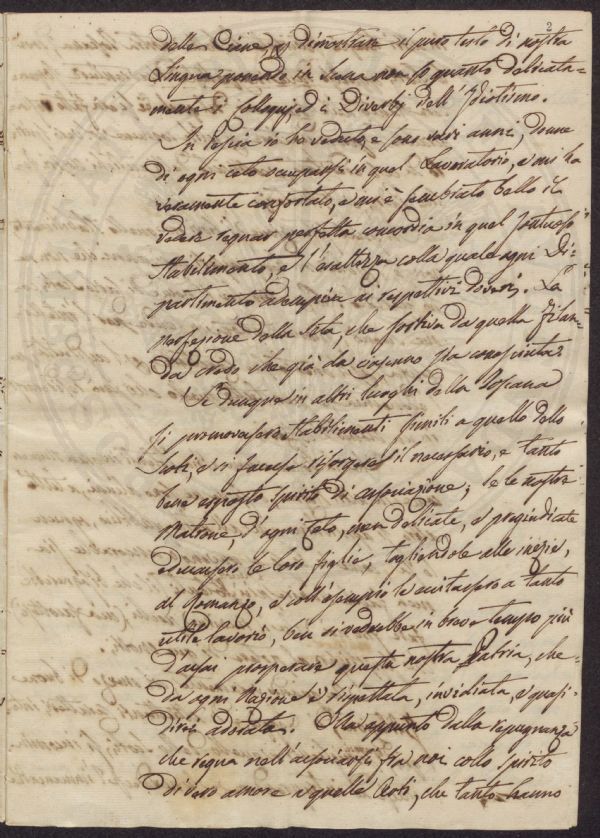 2
delle Cene, e dimostrare il puro testo di nostra
Lingua ponendo in luce non so quanto delicata=
mente i Colloquj, ed i Diverbj dell'Idiotismo.
In Pescia io ho veduto, e sono varj anni, donne
di ogni ceto occuparsi in quel Lavoratorio, e mi ha
veramente confortato, e mi è sembrato bello il
vedere regnar perfetta concordia in quel sontuoso
Stabilimento, e l'esattezza colla quale ogni Di=
partimento adempiva ai respettivi doveri. La
perfezione della Seta, che sortiva da quella Filan=
da credo che già da ognuno sia conosciuta.
Se dunque in altri luoghi della Toscana
si promovessero Stabilimenti simili a quello dello
Scoti, e si facesse risorgere il necessario, e tanto
bene esposto Spirito di associazione; se le nostre
Matrone d'ogni Ceto, men delicate, e pregiudicate
educassero le loro figlie, togliendole alle inezie,
al Romanzo, e coll'esempio le eccitassero a tanto
utile lavorio, ben si vedrebbe in breve tempo più
d'assai prosperare questa nostra Patria, che
da ogni Nazione è rispettata, invidiata, e quasi
direi adorata. Ma appunto dalla repugnanza
che regna nell'associarsi fra noi collo Spirito
di vero amore a quelle Arti, che tanto hanno